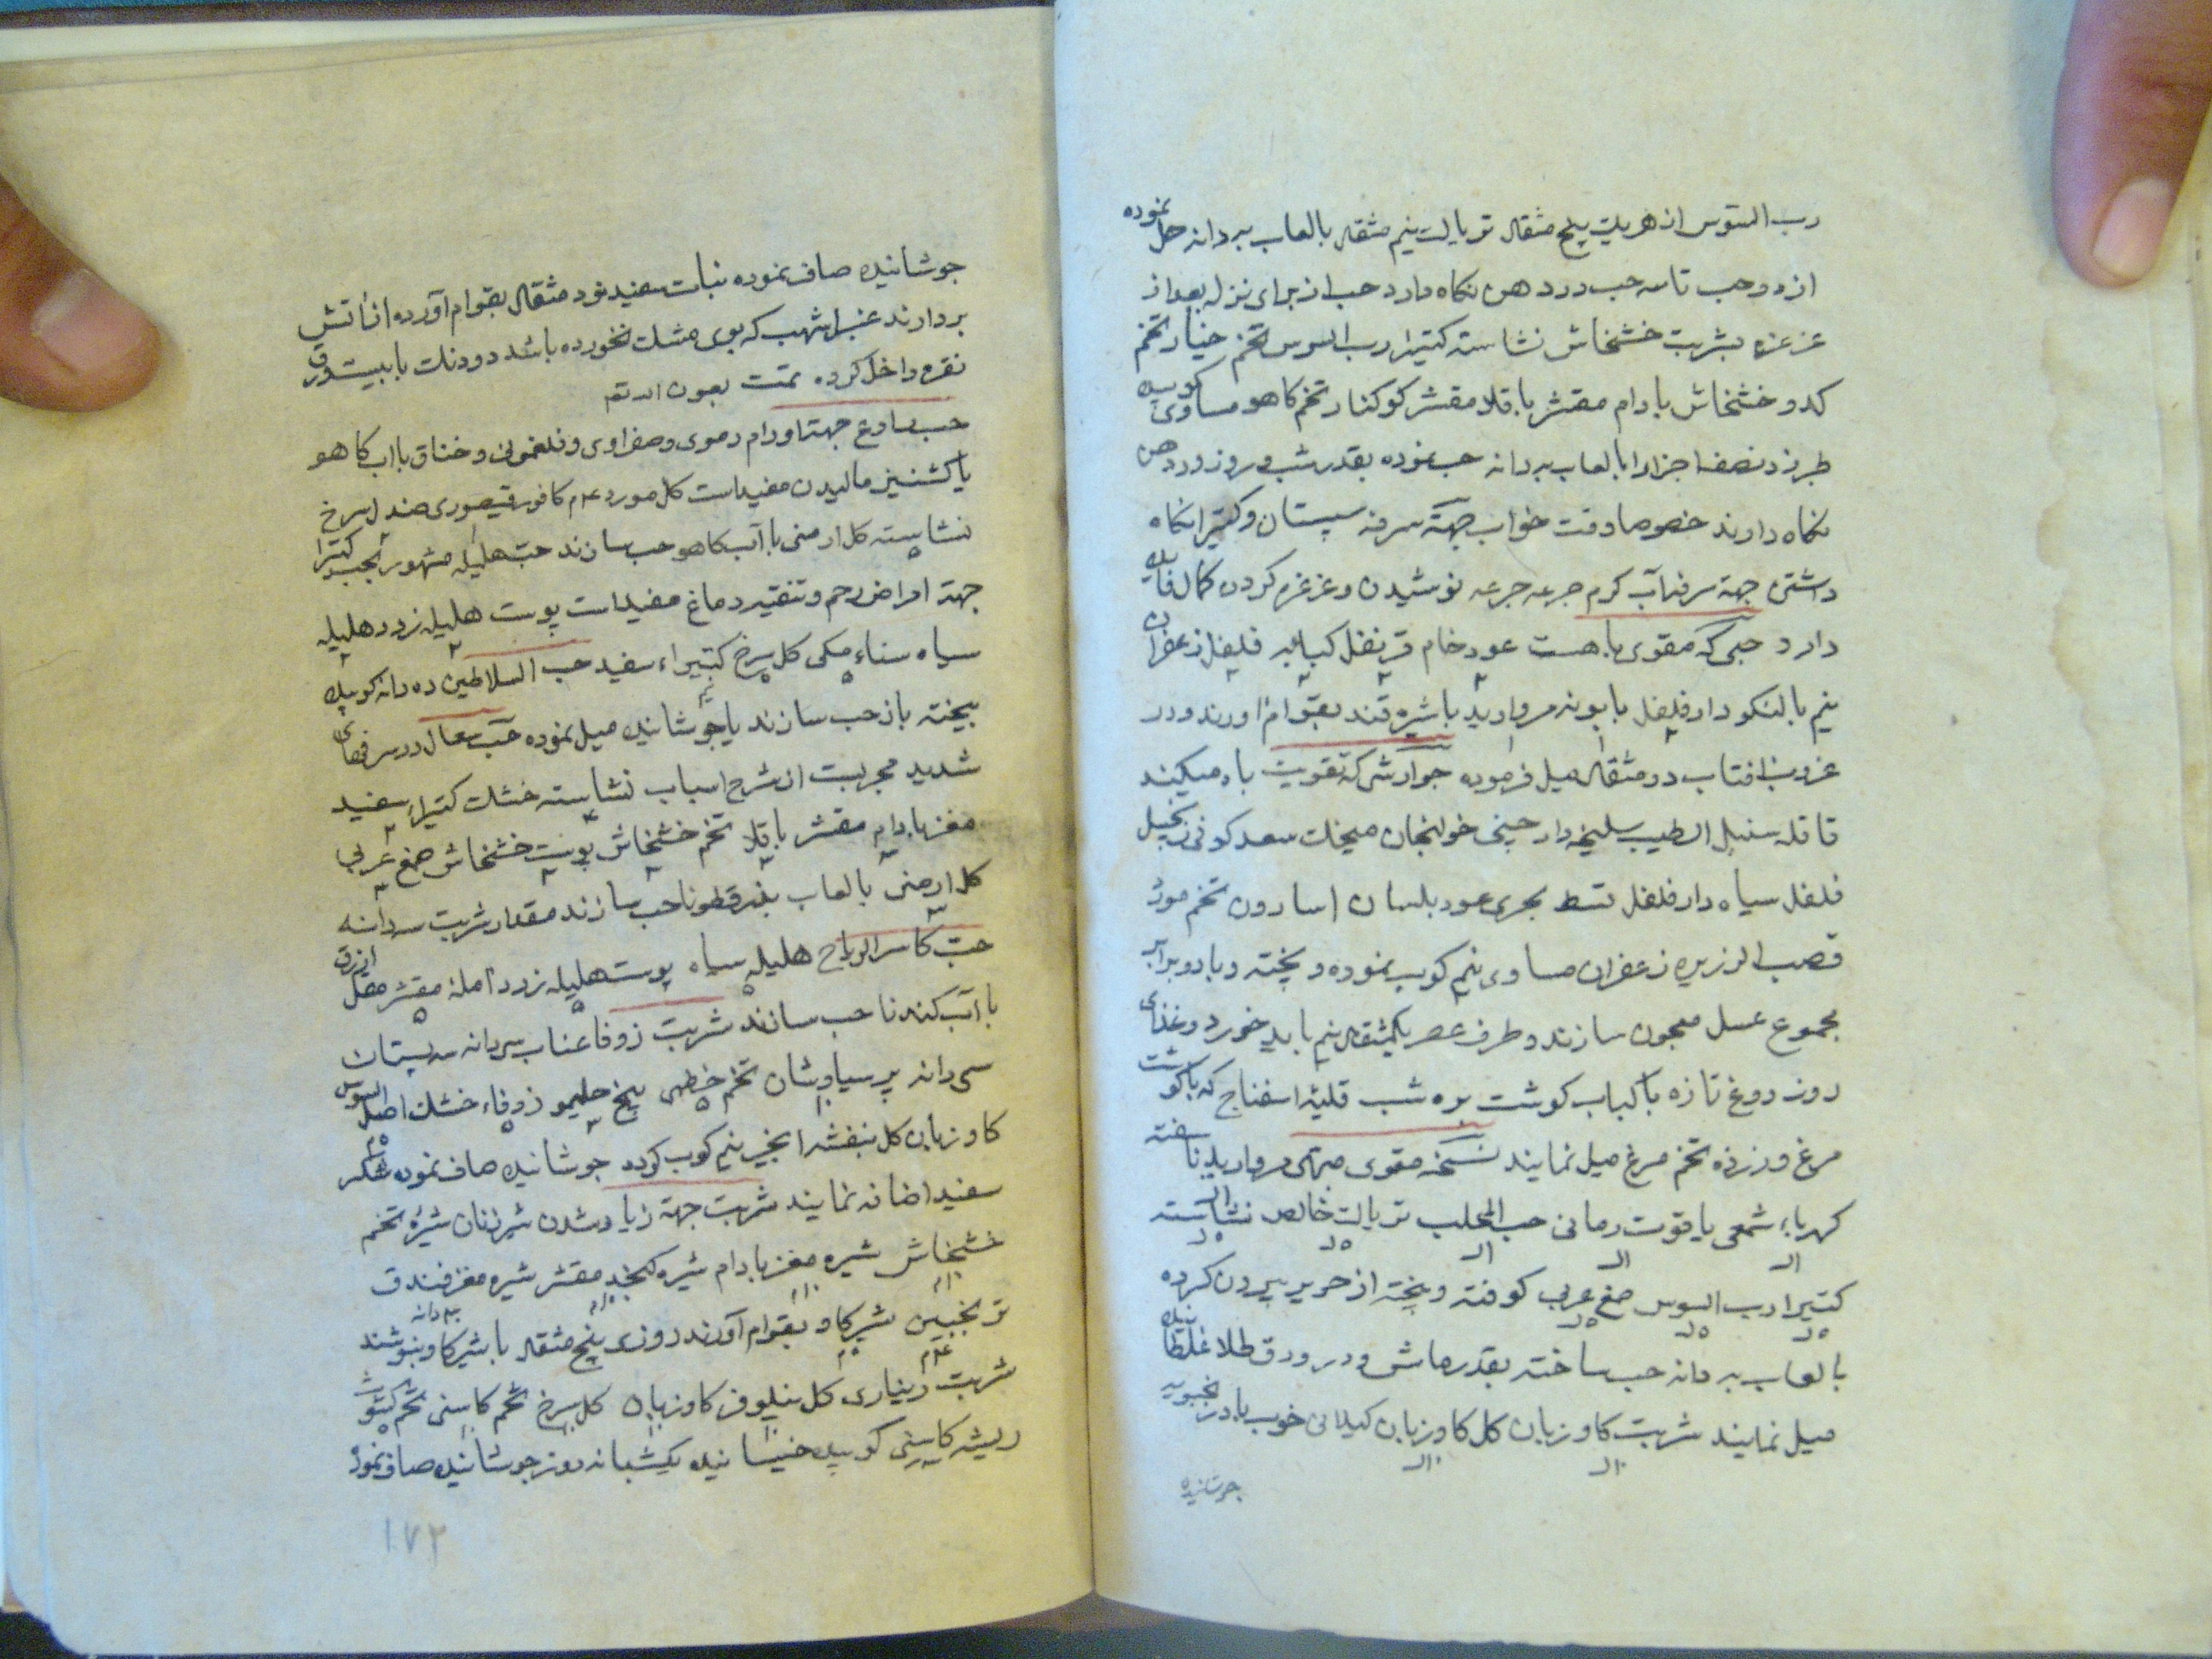 رب السوس از هریک پنج مثقال تریاک نیم مثقال بالعاب بهدانه حل نموده
از دو حب تا سه حب در دهن نکاه دارد حب از برای نزله بعد از
غرغره بشربت خشخاش نشاسته کتیرا رب السوس تخم خیار تخم
کدو خشخاش بادام مقشر باقلا مقشر کوکنار تخم کاهو مساوی کوبیده
طبرزد نصف اجزا را بالعاب بهدانه حب نموده بقدر شب و روز در دهن
نکاه دارند خصوصا وقت خواب جهة سرفه سپستان و کتیرا نکاه
داشتن جهة سرفه آب کرم جرعه جرعه نوشیدن و غرغره کردن کمال فایده
دارد حبی که مقوی باهست عود خام قرنفل کبابه فلفل زعفران
نیم بالنکو دارفلفل بابونه مروارید باشیره قند بقوام اورند و در
غروب افتاب دو مثقال میل فرموده جوارشی که تقویت باه میکند
قاقله سنبل الطیب سلیخه دارچینی خولنجان میخک سعد کوفی زنجبیل
فلفل سیاه دارفلفل قسط بحری عود بلسان اسارون تخم مورد
قصب الذریره زعفران مساوی نیم کوب نموده و پخته و با دو برابر
مجموع عسل معجون سازند و طرف عصر یکمثقال نیم باید خورد و غذای
روز دوغ تازه با کباب کوشت بره شب قلیه اسفناج که با کوشت
مرغ و زرده تخم مرغ میل نمایند نسخه مقوی مبهی مروارید ناسفته
کهرباء شمعی یاقوت رمانی حب المحلب تریاک خالص نشاسته
کتیرا رب السوس صمغ عربی کوفته و پخته از حریر بیرون کرده
بالعاب بهدانه حب ساخته بقدر ماش و در ورق طلا غلطانیده
میل نمایند شربت کاو زبان کل کاو زبان کیلانی خوب بادرنجبویه
جوشانیده
جوشانیده صاف نموده نبات سفید نود مثقال بقوام آورده از آتش
بردارند عنبر اشهب که بوی مشک نخورده باشد دو دنک با بیست ورق
نقره داخل کرده تمت بعون الله تعالی
حب رادع جهت اورام دموی و صفراوی و فلغمونی و خناق با اب کاهو
یا کشنیز مالیدن مفیدست کل مورد ۴م کافور قیصوری صندل سرخ
نشاسته کل ارمنی با آب کاهو حب سازند حب هلیله مشهور بحب کتیرا
جهة امراض رحم و تنقیه دماغ مفیداست پوست هلیله زرد هلیله
سیاه سناء مکی کل سرخ کتیراء سفید حب السلاطین ده دانه کوبیده
بیخته باز حب سازند یا جوشانیده میل نموده حب سعال در سرفهای
شدید مجربست از شرح اسباب نشاسته خشک کتیراء سفید
مغز بادام مقشر باقلا تخم خشخاش پوست خشخاش صمغ عربی
کل ارمنی بالعاب بذر قطونا حب سازند مقدار شربت سه دانه
حب کاسر الریاح هلیله سیاه پوست هلیله زرد آمله مقشر مقل ازرق
با آب کندنا حب سازند شربت زوفا عناب سی دانه سپستان
سی دانه پرسیاوشان تخم خطمی بیخ حلیمو زوفاء خشک اصل السوس
کاو زبان کل بنفشه انجیر نیم کوب کرده جوشانیده صاف نموده شکر
سفید اضافه نمایند شربت جهة زیاد شدن شیر زنان شیره تخم
خشخاش شیره مغز بادام شیره کنجد مقشر شیره مغز فندق
ترنجبین شیر کاو بقوام آورند روزی پنج مثقال با شیر کاو بنوشند
شربت دیناری کل نیلوفر کاو زبان کل سرخ تخم کاسنی تخم کشوث
ریشه کاسنی کوبیده خیسانیده یکشبانه روز جوشانیده صاف نموده
۱۷۲